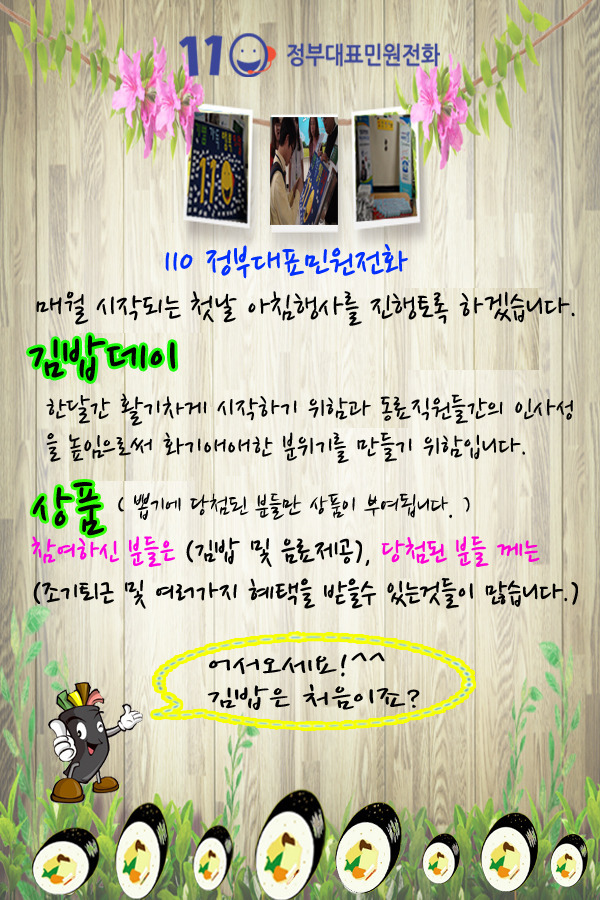 110 정부대표민원전화
110
110 정부대표민원전화
매월 시작되는 첫날 아침행사를 진행토록 하겠습니다.
김밥데이
한달간 활기차게 시작하기 위함과 동료직원들간의 인사성
을 높임으로써 화기애애한 분위기를 만들기 위함입니다.
상품 ( 뽑기에 당첨된 분들만 상품이 부여됩니다. )
참여하신 분들은 (김밥 및 음료제공), 당첨된 분들 께는
(조기퇴근 및 여러가지 혜택을 받을수 있는것들이 많습니다.)
어서오세요!^^
김밥은 처음이죠?